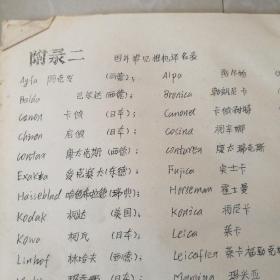 附录二 国外常见相机译名表
Agfa 阿克发 (西德); Alpa
(西德); Bronica 勃朗尼卡
Canon 卡侬 (日本); Canonet 卡侬耐特
Chinon 启侬 (日本); Cosina 柯辛娜
Contax 康太克斯 (西德); Contarex 康太瑞克斯
Exakta 爱克塞太(东德); Fujica 富士卡
Hasselblad (瑞典); Horseman 霍士曼
Kodak 柯达 (美国); Konica 柯尼卡
Kowa 柯瓦 (日本); Leica 莱卡
Linhof 林哈夫 (西德); Leicaflex 莱卡
Mamiya 玛米亚